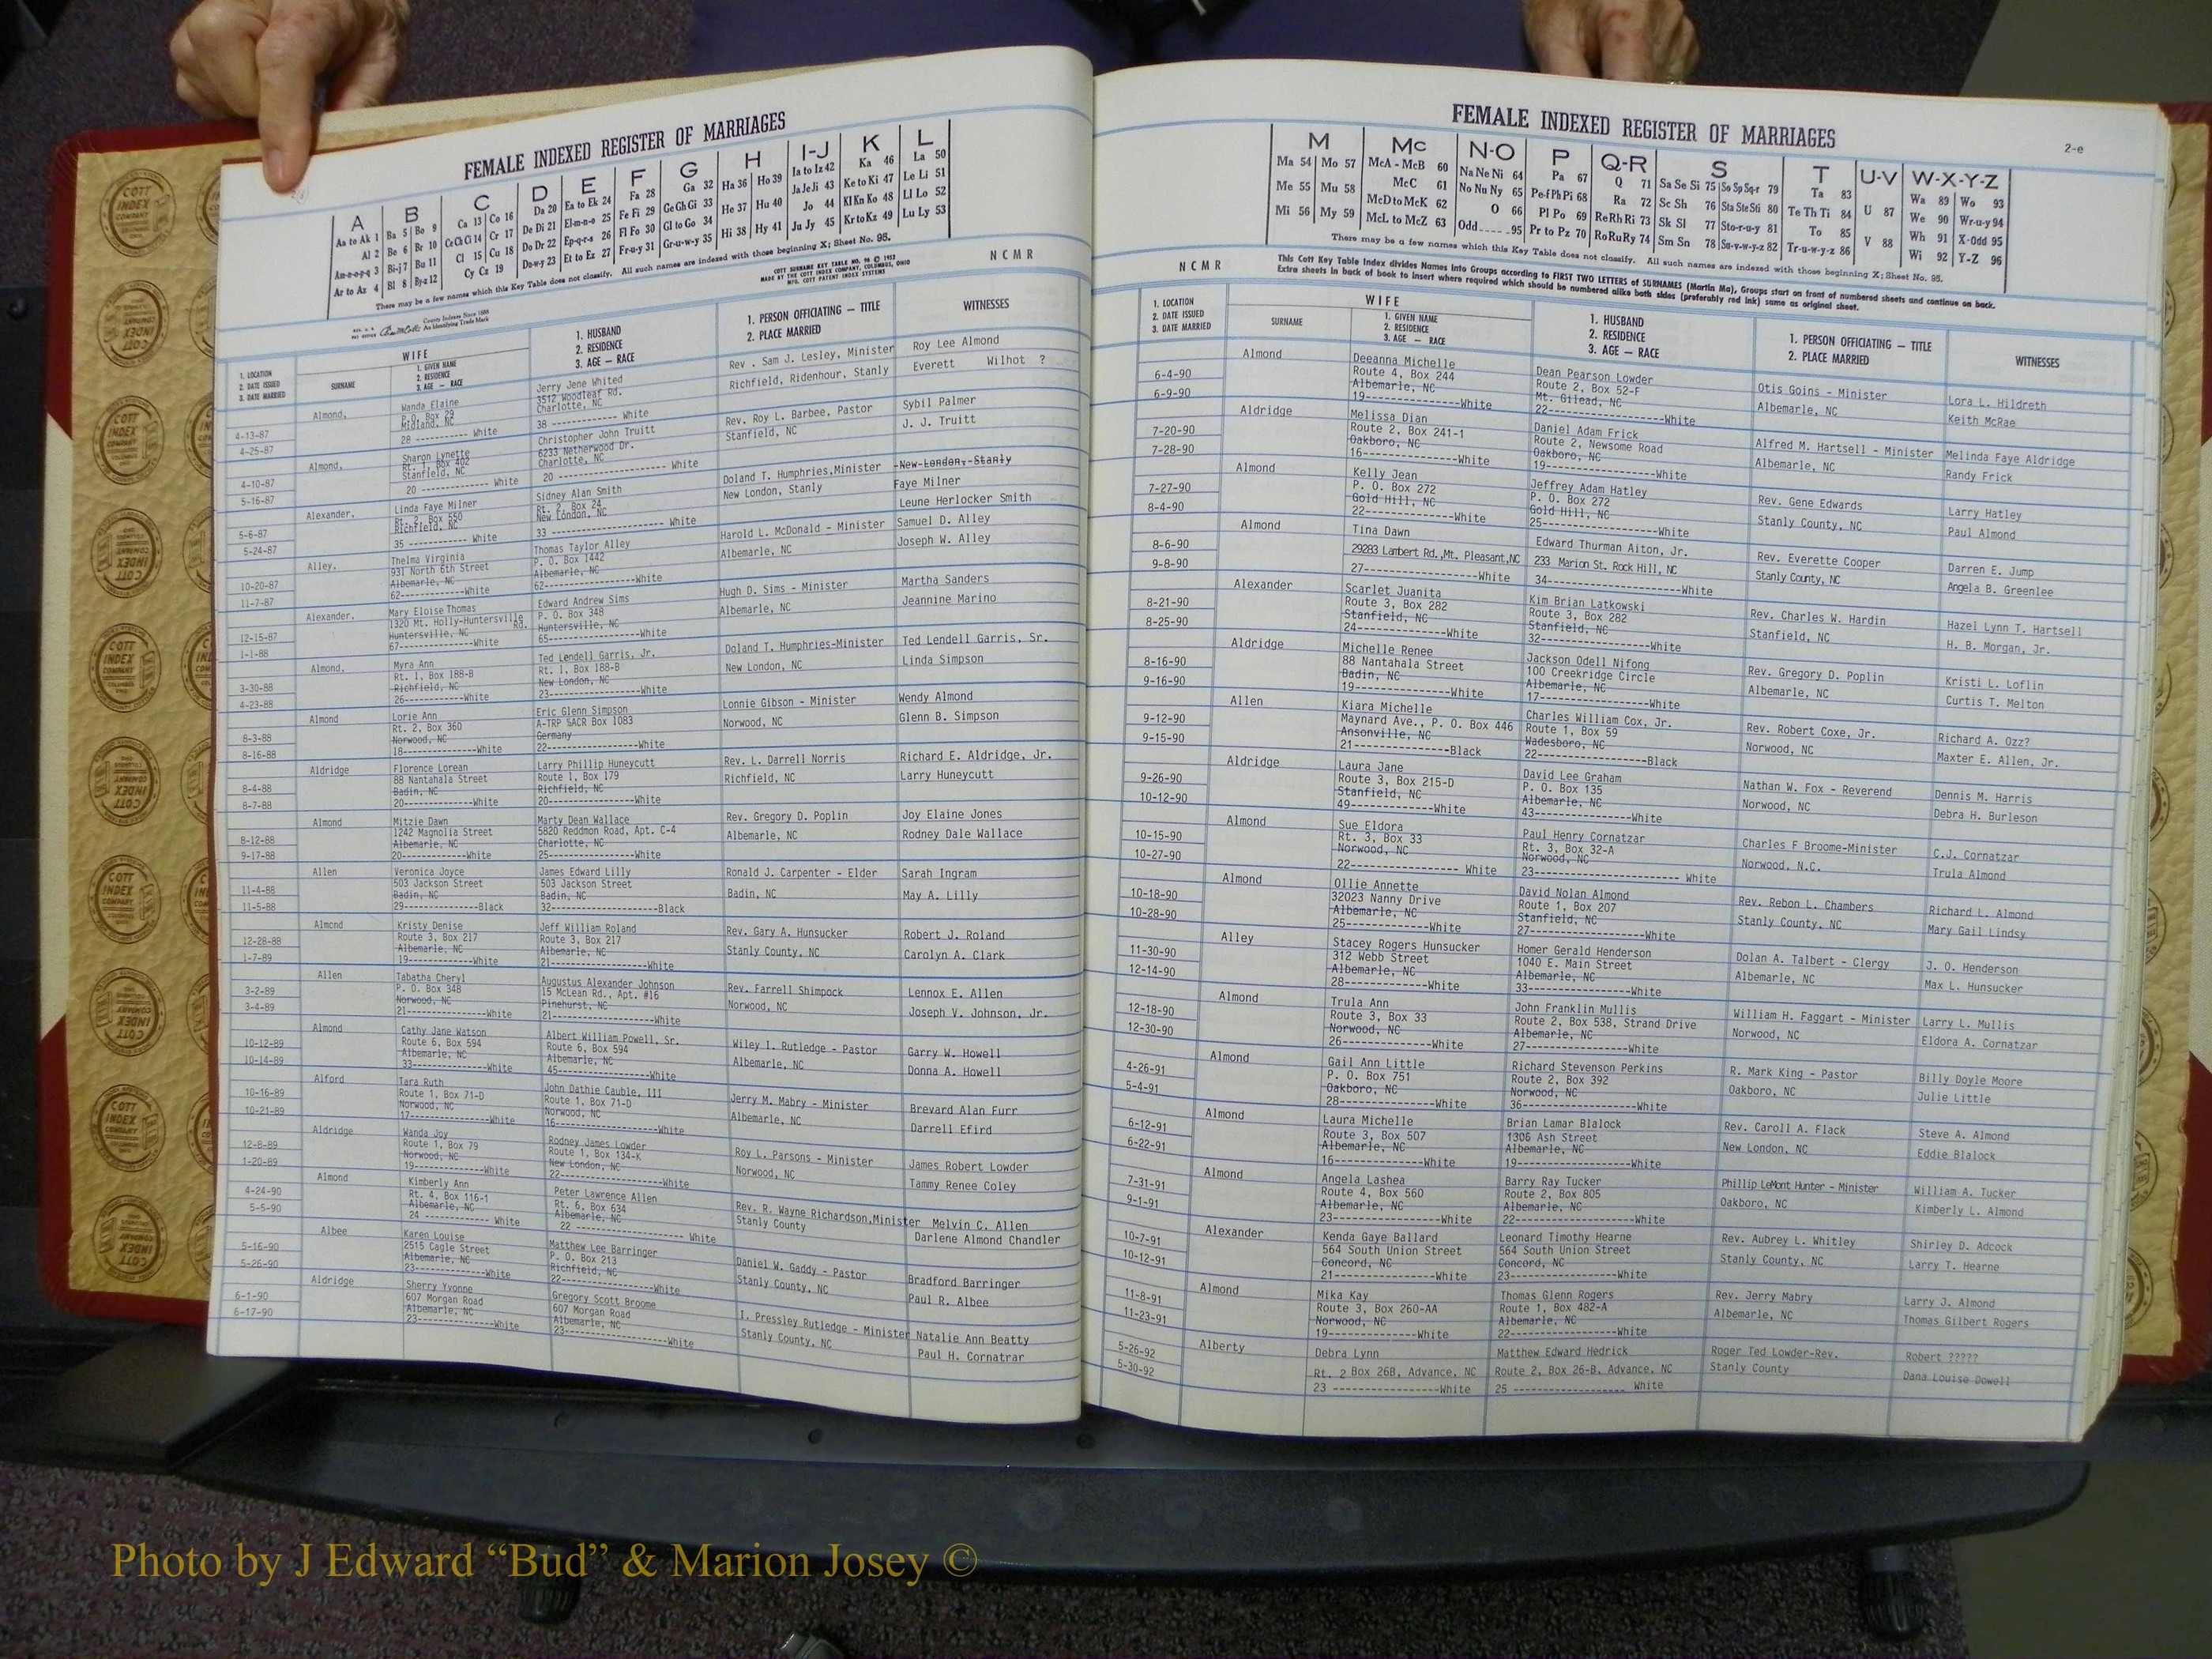 FEMALE INDEXED REGISTER OF MARRIAGES
A B C D E F G H I-J K L
Aa to Ak 1 Ba 5 Bo 9 Ca 13 Co 16 Da 20 Ea to Ek 24 Fa 28 Ga 32 Ha 36 Ho 39 Ia to Iz 42 Ka 46 La 50
Al 2 Be 6 Br 10 Ce Ch Ci 14 Cr 17 De Di 21 El-m-n-o 25 Fe Fi 29 Ge Gh Gi 33 He 37 Hu 40 Ja Je Ji 43 Ke to Ki 47 Le Li 51
Am-n-o-p-q 3 Bi-j 7 Bu 11 Cl 15 Cu 18 Do Dr 22 Ep-q-r-s 26 Fl Fo 30 Gl to Go 34 Hi 38 Hy 41 Jo 44 Kl Kn Ko 48 Ll Lo 52
Ar to Az 4 Bl 8 By-z 12 Cy Cz 19 Du-w-y 23 Et to Ez 27 Fr-u-y 31 Gr-u-w-y 35 Ju Jy 45 Kr to Kz 49 Lu Ly 53
There may be a few names which this Key Table does not classify. All such names are indexed with those beginning X; Sheet No. 95.
COTT SURNAME KEY TABLE NO. 96 © 1952
MADE BY THE COTT INDEX COMPANY, COLUMBUS, OHIO
MFG. COTT PATENT INDEX SYSTEMS
County Indexes Since 1888
An Identifying Trade Mark
NCMR
1. LOCATION
2. DATE ISSUED
3. DATE MARRIED
WIFE
SURNAME
1. GIVEN NAME
2. RESIDENCE
3. AGE — RACE
1. HUSBAND
2. RESIDENCE
3. AGE — RACE
1. PERSON OFFICIATING — TITLE
2. PLACE MARRIED
WITNESSES
4-13-87
4-25-87
Almond,
Wanda Elaine
P.O. Box 29
Midland, NC
28 ---------- White
Jerry Jene Whited
3512 Woodleaf Rd.
Charlotte, NC
38 ---------- White
Rev . Sam J. Lesley, Minister
Richfield, Ridenhour, Stanly
Roy Lee Almond
Everett Wilhot ?
4-10-87
5-16-87
Almond,
Sharon Lynette
Rt. 1, Box 402
Stanfield, NC
20 ------------ White
Christopher John Truitt
6233 Netherwood Dr.
Charlotte, NC
20 ------------ White
Rev. Roy L. Barbee, Pastor
Stanfield, NC
Sybil Palmer
J. J. Truitt
5-6-87
5-24-87
Alexander,
Linda Faye Milner
Rt. 2, Box 550
Richfield, NC
35 ---------- White
Sidney Alan Smith
Rt. 2, Box 24
New London, NC
33 ------------ White
Doland T. Humphries,Minister
New London, Stanly
New London, Stanly
Faye Milner
Leune Herlocker Smith
10-20-87
11-7-87
Alley,
Thelma Virginia
931 North 6th Street
Albemarle, NC
62------------White
Thomas Taylor Alley
P. O. Box 1442
Albemarle, NC
62------------White
Harold L. McDonald - Minister
Albemarle, NC
Samuel D. Alley
Joseph W. Alley
12-15-87
1-1-88
Alexander,
Mary Eloise Thomas
1320 Mt. Holly-Huntersville
Rd.
Huntersville, NC
67------------White
Edward Andrew Sims
P. O. Box 348
Huntersville, NC
65------------White
Hugh D. Sims - Minister
Albemarle, NC
Martha Sanders
Jeannine Marino
3-30-88
4-23-88
Almond,
Myra Ann
Rt. 1, Box 188-B
Richfield, NC
26------------White
Ted Lendell Garris, Jr.
Rt. 1, Box 188-B
New London, NC
23------------White
Doland T. Humphries-Minister
New London, NC
Ted Lendell Garris, Sr.
Linda Simpson
8-3-88
8-16-88
Almond
Lorie Ann
Rt. 2, Box 360
Norwood, NC
18------------White
Eric Glenn Simpson
A-TRP ¾ACR Box 1083
Germany
22------------White
Lonnie Gibson - Minister
Norwood, NC
Wendy Almond
Glenn B. Simpson
8-4-88
8-7-88
Aldridge
Florence Lorean
88 Nantahala Street
Badin, NC
20------------White
Larry Phillip Huneycutt
Route 1, Box 179
Richfield, NC
20------------White
Rev. L. Darrell Norris
Richfield, NC
Richard E. Aldridge, Jr.
Larry Huneycutt
8-12-88
9-17-88
Almond
Mitzie Dawn
1242 Magnolia Street
Albemarle, NC
20------------White
Marty Dean Wallace
5820 Reddmon Road, Apt. C-4
Charlotte, NC
25------------White
Rev. Gregory D. Poplin
Albemarle, NC
Joy Elaine Jones
Rodney Dale Wallace
11-4-88
11-5-88
Allen
Veronica Joyce
503 Jackson Street
Badin, NC
29------------Black
James Edward Lilly
503 Jackson Street
Badin, NC
32------------Black
Ronald J. Carpenter - Elder
Badin, NC
Sarah Ingram
May A. Lilly
12-28-88
1-7-89
Almond
Kristy Denise
Route 3, Box 217
Albemarle, NC
19------------White
Jeff William Roland
Route 3, Box 217
Albemarle, NC
21------------White
Rev. Gary A. Hunsucker
Stanly County, NC
Robert J. Roland
Carolyn A. Clark
3-2-89
3-4-89
Allen
Tabatha Cheryl
P. O. Box 348
Norwood, NC
21------------White
Augustus Alexander Johnson
15 McLean Rd., Apt. #16
Pinehurst, NC
21------------White
Rev. Farrell Shimpock
Norwood, NC
Lennox E. Allen
Joseph V. Johnson, Jr.
10-12-89
10-14-89
Almond
Cathy Jane Watson
Route 6, Box 594
Albemarle, NC
33------------White
Albert William Powell, Sr.
Route 6, Box 594
Albemarle, NC
45------------White
Wiley I. Rutledge - Pastor
Albemarle, NC
Garry W. Howell
Donna A. Howell
10-16-89
10-21-89
Alford
Tara Ruth
Route 1, Box 71-D
Norwood, NC
17------------White
John Dathie Cauble, III
Route 1, Box 71-D
Norwood, NC
16------------White
Jerry M. Mabry - Minister
Albemarle, NC
Brevard Alan Furr
Darrell Efird
12-8-89
1-20-89
Aldridge
Wanda Joy
Route 1, Box 79
Norwood, NC
19------------White
Rodney James Lowder
Route 1, Box 134-K
New London, NC
22------------White
Roy L. Parsons - Minister
Norwood, NC
James Robert Lowder
Tammy Renee Coley
4-24-90
5-5-90
Almond
Kimberly Ann
Rt. 4, Box 116-1
Albemarle, NC
24 ---------- White
Peter Lawrence Allen
Rt. 6, Box 634
Albemarle, NC
22 ------------ White
Rev. R. Wayne Richardson,Minister
Stanly County
Melvin C. Allen
Darlene Almond Chandler
5-16-90
5-26-90
Albee
Karen Louise
2515 Cagle Street
Albemarle, NC
23------------White
Matthew Lee Barringer
P. O. Box 213
Richfield, NC
22------------White
Daniel W. Gaddy - Pastor
Stanly County, NC
Bradford Barringer
Paul R. Albee
6-1-90
6-17-90
Aldridge
Sherry Yvonne
607 Morgan Road
Albemarle, NC
23------------White
Gregory Scott Broome
607 Morgan Road
Albemarle, NC
23------------White
I. Pressley Rutledge - Minister
Stanly County, NC
Natalie Ann Beatty
Paul H. Cornatrar
FEMALE INDEXED REGISTER OF MARRIAGES
2-e
M Mc N-O P Q-R S T U-V W-X-Y-Z
Ma 54 Mo 57 McA - McB 60 Na Ne Ni 64 Pa 67 Q 71 Sa Se Si 75 So Sp Sq-r 79 Ta 83 U 87 Wa 89 Wo 93
Me 55 Mu 58 McC 61 No Nu Ny 65 Pe-f Ph Pi 68 Ra 72 Sc Sh 76 Sta Ste Sti 80 Te Th Ti 84 V 88 We 90 Wr-u-y 94
Mi 56 My 59 McD to McK 62 O 66 Pl Po 69 Re Rh Ri 73 Sk Sl 77 Sto-r-u-y 81 To 85 Wh 91 X-Odd 95
McL to McZ 63 Odd_____95 Pr to Pz 70 Ro Ru Ry 74 Sm Sn 78 Su-v-w-y-z 82 Tr-u-w-y-z 86 Wi 92 Y-Z 96
There may be a few names which this Key Table does not classify. All such names are indexed with those beginning X; Sheet No. 95.
This Cott Key Table Index divides Names into Groups according to FIRST TWO LETTERS of SURNAMES (Martin Ma), Groups start on front of numbered sheets and continue on back.
Extra sheets in back of book to insert where required which should be numbered alike both sides (preferably red ink) same as original sheet.
NCMR
1. LOCATION
2. DATE ISSUED
3. DATE MARRIED
WIFE
SURNAME
1. GIVEN NAME
2. RESIDENCE
3. AGE — RACE
1. HUSBAND
2. RESIDENCE
3. AGE — RACE
1. PERSON OFFICIATING — TITLE
2. PLACE MARRIED
WITNESSES
6-4-90
6-9-90
Almond
Deeanna Michelle
Route 4, Box 244
Albemarle, NC
19------------White
Dean Pearson Lowder
Route 2, Box 52-F
Mt. Gilead, NC
22------------White
Otis Goins - Minister
Albemarle, NC
Lora L. Hildreth
Keith McRae
7-20-90
7-28-90
Aldridge
Melissa Dian
Route 2, Box 241-1
Oakboro, NC
16------------White
Daniel Adam Frick
Route 2, Newsome Road
Oakboro, NC
19------------White
Alfred M. Hartsell - Minister
Albemarle, NC
Melinda Faye Aldridge
Randy Frick
7-27-90
8-4-90
Almond
Kelly Jean
P. O. Box 272
Gold Hill, NC
22------------White
Jeffrey Adam Hatley
P. O. Box 272
Gold Hill, NC
25------------White
Rev. Gene Edwards
Stanly County, NC
Larry Hatley
Paul Almond
8-6-90
9-8-90
Almond
Tina Dawn
29283 Lambert Rd.,Mt. Pleasant,NC
27------------White
Edward Thurman Aiton, Jr.
233 Marion St. Rock Hill, NC
34------------White
Rev. Everette Cooper
Stanly County, NC
Darren E. Jump
Angela B. Greenlee
8-21-90
8-25-90
Alexander
Scarlet Juanita
Route 3, Box 282
Stanfield, NC
24------------White
Kim Brian Latkowski
Route 3, Box 282
Stanfield, NC
32------------White
Rev. Charles W. Hardin
Stanfield, NC
Hazel Lynn T. Hartsell
H. B. Morgan, Jr.
8-16-90
9-16-90
Aldridge
Michelle Renee
88 Nantahala Street
Badin, NC
19------------White
Jackson Odell Nifong
100 Creekridge Circle
Albemarle, NC
17------------White
Rev. Gregory D. Poplin
Albemarle, NC
Kristi L. Loflin
Curtis T. Melton
9-12-90
9-15-90
Allen
Kiara Michelle
Maynard Ave., P. O. Box 446
Ansonville, NC
21------------Black
Charles William Cox, Jr.
Route 1, Box 59
Wadesboro, NC
22------------Black
Rev. Robert Coxe, Jr.
Norwood, NC
Richard A. Ozz?
Maxter E. Allen, Jr.
9-26-90
10-12-90
Aldridge
Laura Jane
Route 3, Box 215-D
Stanfield, NC
49------------White
David Lee Graham
P. O. Box 135
Albemarle, NC
43------------White
Nathan W. Fox - Reverend
Norwood, NC
Dennis M. Harris
Debra H. Burleson
10-15-90
10-27-90
Almond
Sue Eldora
Rt. 3, Box 33
Norwood, NC
22------------ White
Paul Henry Cornatzar
Rt. 3, Box 32-A
Norwood, NC
23------------ White
Charles F Broome-Minister
Norwood, N.C.
C.J. Cornatzar
Trula Almond
10-18-90
10-28-90
Almond
Ollie Annette
32023 Nanny Drive
Albemarle, NC
25------------White
David Nolan Almond
Route 1, Box 207
Stanfield, NC
27------------White
Rev. Rebon L. Chambers
Stanly County, NC
Richard L. Almond
Mary Gail Lindsy
11-30-90
12-14-90
Alley
Stacey Rogers Hunsucker
312 Webb Street
Albemarle, NC
28------------White
Homer Gerald Henderson
1040 E. Main Street
Albemarle, NC
33------------White
Dolan A. Talbert - Clergy
Albemarle, NC
J. O. Henderson
Max L. Hunsucker
12-18-90
12-30-90
Almond
Trula Ann
Route 3, Box 33
Norwood, NC
26------------White
John Franklin Mullis
Route 2, Box 538, Strand Drive
Albemarle, NC
27------------White
William H. Faggart - Minister
Norwood, NC
Larry L. Mullis
Eldora A. Cornatzar
4-26-91
5-4-91
Almond
Gail Ann Little
P. O. Box 751
Oakboro, NC
28------------White
Richard Stevenson Perkins
Route 2, Box 392
Norwood, NC
36------------White
R. Mark King - Pastor
Oakboro, NC
Billy Doyle Moore
Julie Little
6-12-91
6-22-91
Almond
Laura Michelle
Route 3, Box 507
Albemarle, NC
16------------White
Brian Lamar Blalock
1306 Ash Street
Albemarle, NC
19------------White
Rev. Caroll A. Flack
New London, NC
Steve A. Almond
Eddie Blalock
7-31-91
9-1-91
Almond
Angela Lashea
Route 4, Box 560
Albemarle, NC
23------------White
Barry Ray Tucker
Route 2, Box 805
Albemarle, NC
22------------White
Phillip LeMont Hunter - Minister
Oakboro, NC
William A. Tucker
Kimberly L. Almond
10-7-91
10-12-91
Alexander
Kenda Gaye Ballard
564 South Union Street
Concord, NC
21------------White
Leonard Timothy Hearne
564 South Union Street
Concord, NC
23------------White
Rev. Aubrey L. Whitley
Stanly County, NC
Shirley D. Adcock
Larry T. Hearne
11-8-91
11-23-91
Almond
Mika Kay
Route 3, Box 260-AA
Norwood, NC
19------------White
Thomas Glenn Rogers
Route 1, Box 482-A
Albemarle, NC
22------------White
Rev. Jerry Mabry
Albemarle, NC
Larry J. Almond
Thomas Gilbert Rogers
5-26-92
5-30-92
Alberty
Debra Lynn
Rt. 2 Box 26B, Advance, NC
23 ------------White
Matthew Edward Hedrick
Route 2, Box 26-B, Advance, NC
25 ------------ White
Roger Ted Lowder-Rev.
Stanly County
Robert ?????
Dana Louise Dowell
COTT
INDEX
COMPANY
Photo by J Edward “Bud” & Marion Josey ©